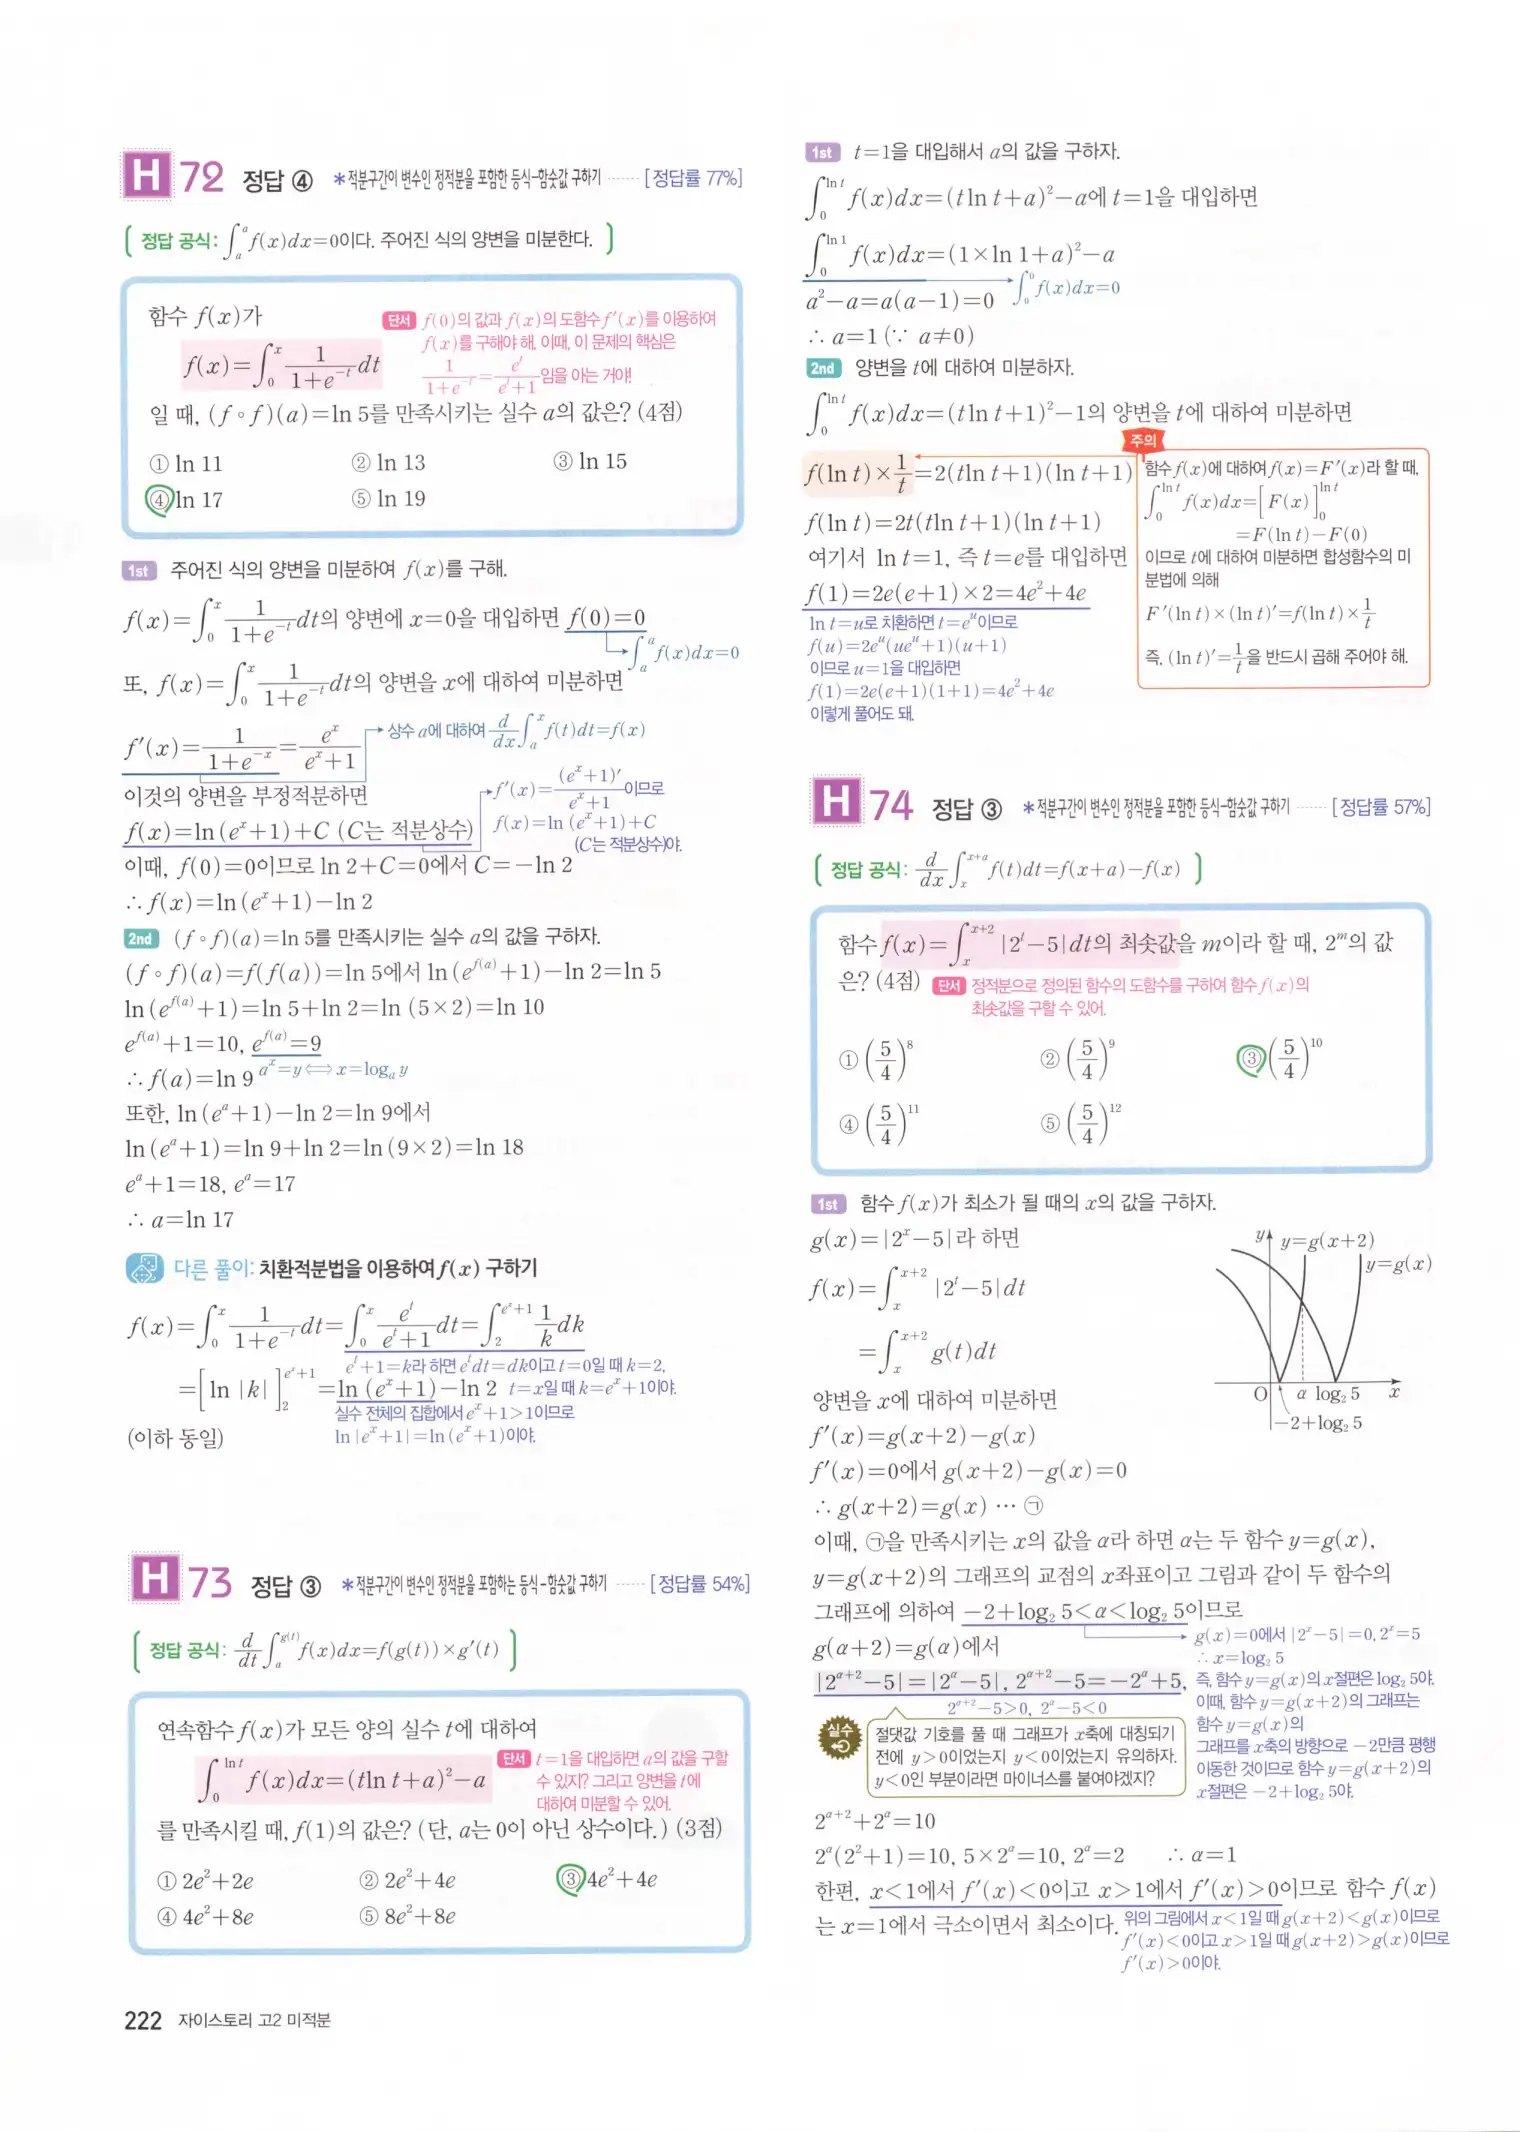 H 72 정답 ④ *적분구간이 변수인 정적분을 포함한 등식-함숫값 구하기 ······ [정답률 77%]
정답 공식: ∫_a^a f(x)dx=0이다. 주어진 식의 양변을 미분한다.
함수 f(x)가
단서 f(0)의 값과 f(x)의 도함수 f′(x)를 이용하여
f(x)를 구해야 해. 이때, 이 문제의 핵심은
1/(1+e^{-t})=e^t/(e^t+1)임을 아는 거야!
f(x)=∫_0^x 1/(1+e^{-t})dt
일 때, (f∘f)(a)=ln 5를 만족시키는 실수 a의 값은? (4점)
① ln 11 ② ln 13 ③ ln 15
④ ln 17 ⑤ ln 19
1st 주어진 식의 양변을 미분하여 f(x)를 구해.
f(x)=∫_0^x 1/(1+e^{-t})dt의 양변에 x=0을 대입하면 f(0)=0
∫_a^a f(x)dx=0
또, f(x)=∫_0^x 1/(1+e^{-t})dt의 양변을 x에 대하여 미분하면
f′(x)=1/(1+e^{-x})=e^x/(e^x+1)
상수 a에 대하여 d/dx∫_a^x f(t)dt=f(x)
이것의 양변을 부정적분하면
f(x)=ln(e^x+1)+C (C는 적분상수)
f′(x)=(e^x+1)′/(e^x+1)이므로
f(x)=ln (e^x+1)+C
(C는 적분상수)야.
이때, f(0)=0이므로 ln 2+C=0에서 C=-ln 2
∴ f(x)=ln(e^x+1)-ln 2
2nd (f∘f)(a)=ln 5를 만족시키는 실수 a의 값을 구하자.
(f∘f)(a)=f(f(a))=ln 5에서 ln(e^{f(a)}+1)-ln 2=ln 5
ln(e^{f(a)}+1)=ln 5+ln 2=ln (5×2)=ln 10
e^{f(a)}+1=10, e^{f(a)}=9
∴ f(a)=ln 9 a^x=y⟺x=log_a y
또한, ln(e^a+1)-ln 2=ln 9에서
ln(e^a+1)=ln 9+ln 2=ln(9×2)=ln 18
e^a+1=18, e^a=17
∴ a=ln 17
다른 풀이: 치환적분법을 이용하여 f(x) 구하기
f(x)=∫_0^x 1/(1+e^{-t})dt=∫_0^x e^t/(e^t+1)dt=∫_2^{e^x+1} 1/k dk
e^t+1=k라 하면 e^t dt=dk이고 t=0일 때 k=2,
=[ln |k|]_2^{e^x+1}=ln (e^x+1)-ln 2 t=x일 때 k=e^x+1이야.
실수 전체의 집합에서 e^x+1>1이므로
ln |e^x+1|=ln (e^x+1)이야.
(이하 동일)
H 73 정답 ③ *적분구간이 변수인 정적분을 포함하는 등식-함숫값 구하기 ······ [정답률 54%]
정답 공식: d/dt∫_a^{g(t)} f(x)dx=f(g(t))×g′(t)
연속함수 f(x)가 모든 양의 실수 t에 대하여
∫_0^{ln t} f(x)dx=(tln t+a)²-a
단서 t=1을 대입하면 a의 값을 구할
수 있지? 그리고 양변을 t에
대하여 미분할 수 있어.
를 만족시킬 때, f(1)의 값은? (단, a는 0이 아닌 상수이다.) (3점)
① 2e²+2e ② 2e²+4e ③ 4e²+4e
④ 4e²+8e ⑤ 8e²+8e
222 자이스토리 고2 미적분
1st t=1을 대입해서 a의 값을 구하자.
∫_0^{ln t} f(x)dx=(t ln t+a)²-a에 t=1을 대입하면
∫_0^{ln 1} f(x)dx=(1×ln 1+a)²-a
∫_0^0 f(x)dx=0
a²-a=a(a-1)=0
∴ a=1 (∵ a≠0)
2nd 양변을 t에 대하여 미분하자.
∫_0^{ln t} f(x)dx=(t ln t+1)²-1의 양변을 t에 대하여 미분하면
f(ln t)×1/t=2(tln t+1)(ln t+1)
f(ln t)=2t(tln t+1)(ln t+1)
여기서 ln t=1, 즉 t=e를 대입하면
f(1)=2e(e+1)×2=4e²+4e
ln t=u로 치환하면 t=e^u이므로
f(u)=2e^u(ue^u+1)(u+1)
이므로 u=1을 대입하면
f(1)=2e(e+1)(1+1)=4e²+4e
이렇게 풀어도 돼.
주의
함수 f(x)에 대하여 f(x)=F′(x)라 할 때,
∫_0^{ln t} f(x)dx=[F(x)]_0^{ln t}
=F(ln t)-F(0)
이므로 t에 대하여 미분하면 합성함수의 미
분법에 의해
F′(ln t)×(ln t)′=f(ln t)×1/t
즉, (ln t)′=1/t을 반드시 곱해 주어야 해.
H 74 정답 ③ *적분구간이 변수인 정적분을 포함한 등식-함숫값 구하기 ······ [정답률 57%]
정답 공식: d/dx∫_x^{x+a} f(t)dt=f(x+a)-f(x)
함수 f(x)=∫_x^{x+2} |2^t-5|dt의 최솟값을 m이라 할 때, 2^m의 값
은? (4점) 단서 정적분으로 정의된 함수의 도함수를 구하여 함수 f(x)의
최솟값을 구할 수 있어.
① (5/4)^8 ② (5/4)^9 ③ (5/4)^10
④ (5/4)^11 ⑤ (5/4)^12
1st 함수 f(x)가 최소가 될 때의 x의 값을 구하자.
g(x)=|2^x-5|라 하면
f(x)=∫_x^{x+2} |2^t-5|dt
=∫_x^{x+2} g(t)dt
y y=g(x+2)
y=g(x)
O α log₂ 5 x
-2+log₂ 5
양변을 x에 대하여 미분하면
f′(x)=g(x+2)-g(x)
f′(x)=0에서 g(x+2)-g(x)=0
∴ g(x+2)=g(x) ⋯ ㉠
이때, ㉠을 만족시키는 x의 값을 α라 하면 α는 두 함수 y=g(x),
y=g(x+2)의 그래프의 교점의 x좌표이고 그림과 같이 두 함수의
그래프에 의하여 -2+log₂ 5<α<log₂ 5이므로
g(α+2)=g(α)에서
|2^{α+2}-5|=|2^α-5|, 2^{α+2}-5=-2^α+5,
2^{α+2}-5>0, 2^α-5<0
g(x)=0에서 |2^x-5|=0, 2^x=5
∴ x=log₂ 5
즉, 함수 y=g(x)의 x절편은 log₂ 5야.
이때, 함수 y=g(x+2)의 그래프는
함수 y=g(x)의
그래프를 x축의 방향으로 -2만큼 평행
이동한 것이므로 함수 y=g(x+2)의
x절편은 -2+log₂ 5야.
실수
절댓값 기호를 풀 때 그래프가 x축에 대칭되기
전에 y>0이었는지 y<0이었는지 유의하자.
y<0인 부분이라면 마이너스를 붙여야겠지?
2^{α+2}+2^α=10
2^α(2²+1)=10, 5×2^α=10, 2^α=2 ∴ α=1
한편, x<1에서 f′(x)<0이고 x>1에서 f′(x)>0이므로 함수 f(x)
는 x=1에서 극소이면서 최소이다.
위의 그림에서 x<1일 때 g(x+2)<g(x)이므로
f′(x)<0이고 x>1일 때 g(x+2)>g(x)이므로
f′(x)>0이야.